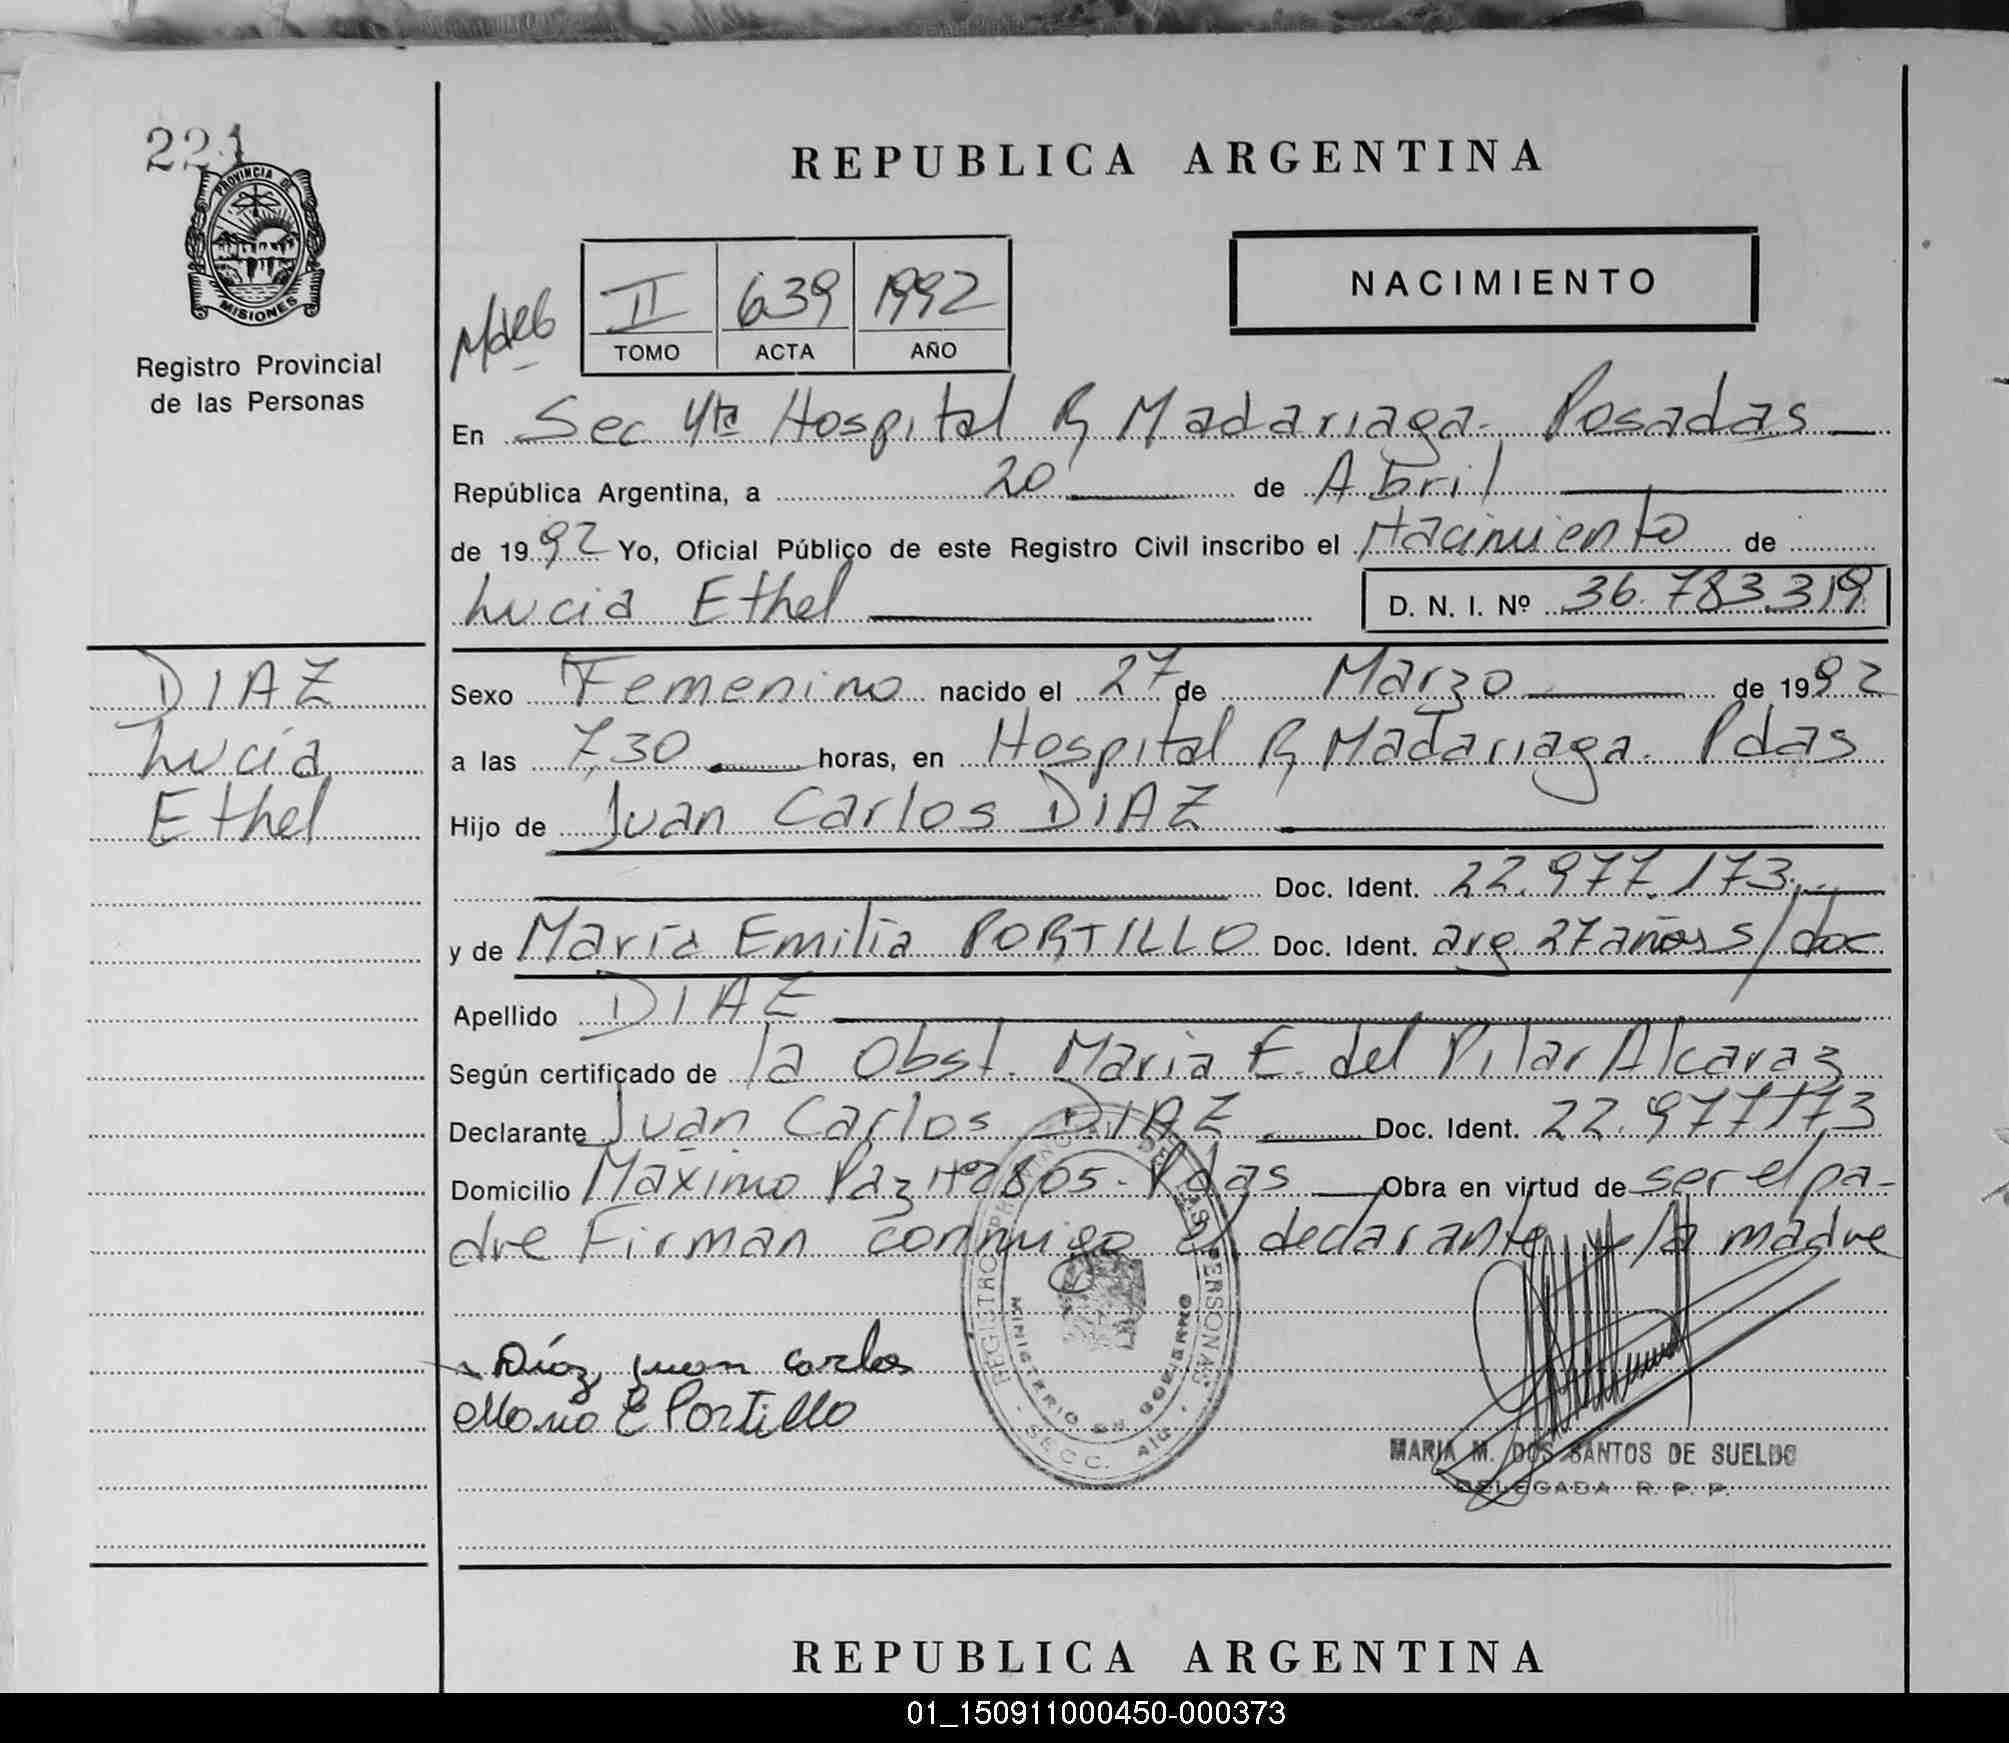 221
PROVINCIA DE
MISIONES
Registro Provincial
de las Personas
REPUBLICA ARGENTINA
NACIMIENTO
II 639 1992
TOMO ACTA AÑO
En Sec 4ta Hospital R, Madariaga. Posadas
República Argentina, a 20 de Abril
de 1992 Yo, Oficial Público de este Registro Civil inscribo el Nacimiento de
Lucia Ethel D. N. I. Nº 36.783.319
DIAZ
Lucia
Ethel
Sexo Femenino nacido el 27 de Marzo de 1992
a las 7,30 horas, en Hospital R, Madariaga. Pdas
Hijo de Juan Carlos DIAZ
Doc. Ident. 22.977.173.
y de Maria Emilia PORTILLO Doc. Ident. arg. 27 años s/doc
Apellido DIAZ
Según certificado de la Obst. Maria E. del Pilar Alcaraz
Declarante Juan Carlos DIAZ Doc. Ident. 22.977173
Domicilio Máximo Paz Nº 2805. Pdas Obra en virtud de ser el pa-
dre Firman conmigo el declarante y la madre
REGISTRO PROVINCIAL DE LAS PERSONAS
MINISTERIO DE GOBIERNO
SECC.
Díaz juan carlos
Maria E Portillo
MARIA M. DOS SANTOS DE SUELDO
DELEGADA R. P. P.
REPUBLICA ARGENTINA
01_150911000450-000373